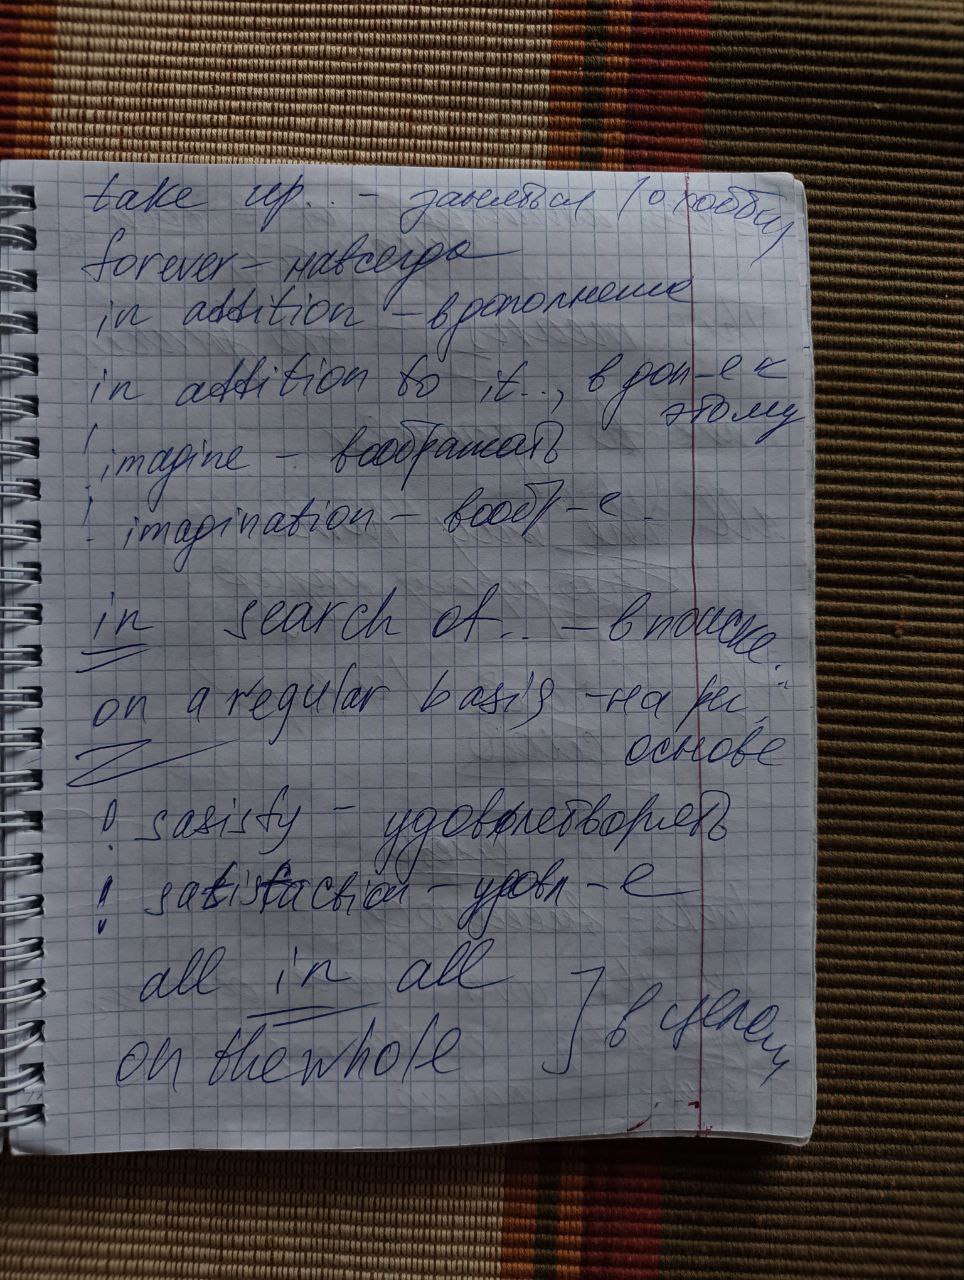 take up.. - заняться (о хобби
forever - навсегда
in attition - в дополнение
in attition to it.., в доп-е к
этому
! imagine - воображать
! imagination - вообр-е
in search of.. - в поиске..
on a regular basis - на
основе
! sasisfy - удовлетворять
! satisfaction - удовл-е
all in all
on the whole
] в целом